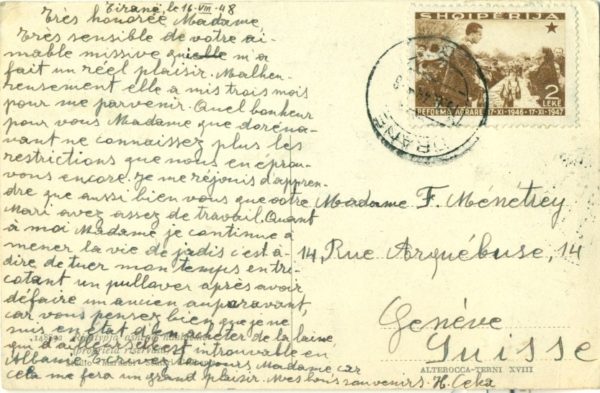 Tirana, le 16-VIII-48
Très honorée Madame
Très sensible de votre ai-
mable missive qu'elle m'a
fait un réel plaisir. Malheu-
reusement elle a mis trois mois
pour me parvenir. Quel bonheur
pour vous Madame que doréna-
vant ne connaissez plus les
restrictions que nous en éprou-
vons encore. Je me réjouis d'appren-
dre que aussi bien vous que votre
Mari avez assez de travail. Quant
à moi Madame je continue à
mener la vie de jadis c'est-à-
dire de tuer mon temps en tri-
cotant un pullover après avoir
défaire un ancien auparavant,
car vous pensez bien que je ne
suis en état d'en acheter de la laine
qui d'ailleurs est introuvable en
Albanie. Ecrivez toujours Madame car
cela me fera un grand plaisir. Mes bons souvenirs. H. Ceka
SHQIPERIJA
2
LEKE
REFORMA AGRARE 17-XI-1946-17-XI-1947
TIRANE
Madame F. Ménétrey
14, Rue Arquébuse, 14
Genève
Suisse
ALTEROCCA-TERNI XVIII